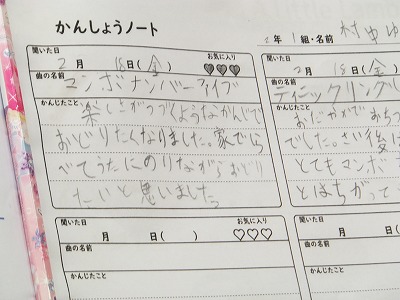 かんしょうノート
年 1組・名前
聞いた日
2月18日(金) お気に入り
曲の名前
マンボナンバーファイブ
かんじたこと
楽しさがつづくようなかんじで
おどりたくなりました。家でら
べてうたにのりながらおどり
たいと思いました。
聞いた日
月 日( ) お気に入り
曲の名前
かんじたこと
聞いた日
2月18日(金)
曲の名前
ティニックリング
かんじたこと
おだやかでおちつ
でした。さい後は
とてもマンボ
とはちがって
聞いた日
月 日(
曲の名前
かんじたこと